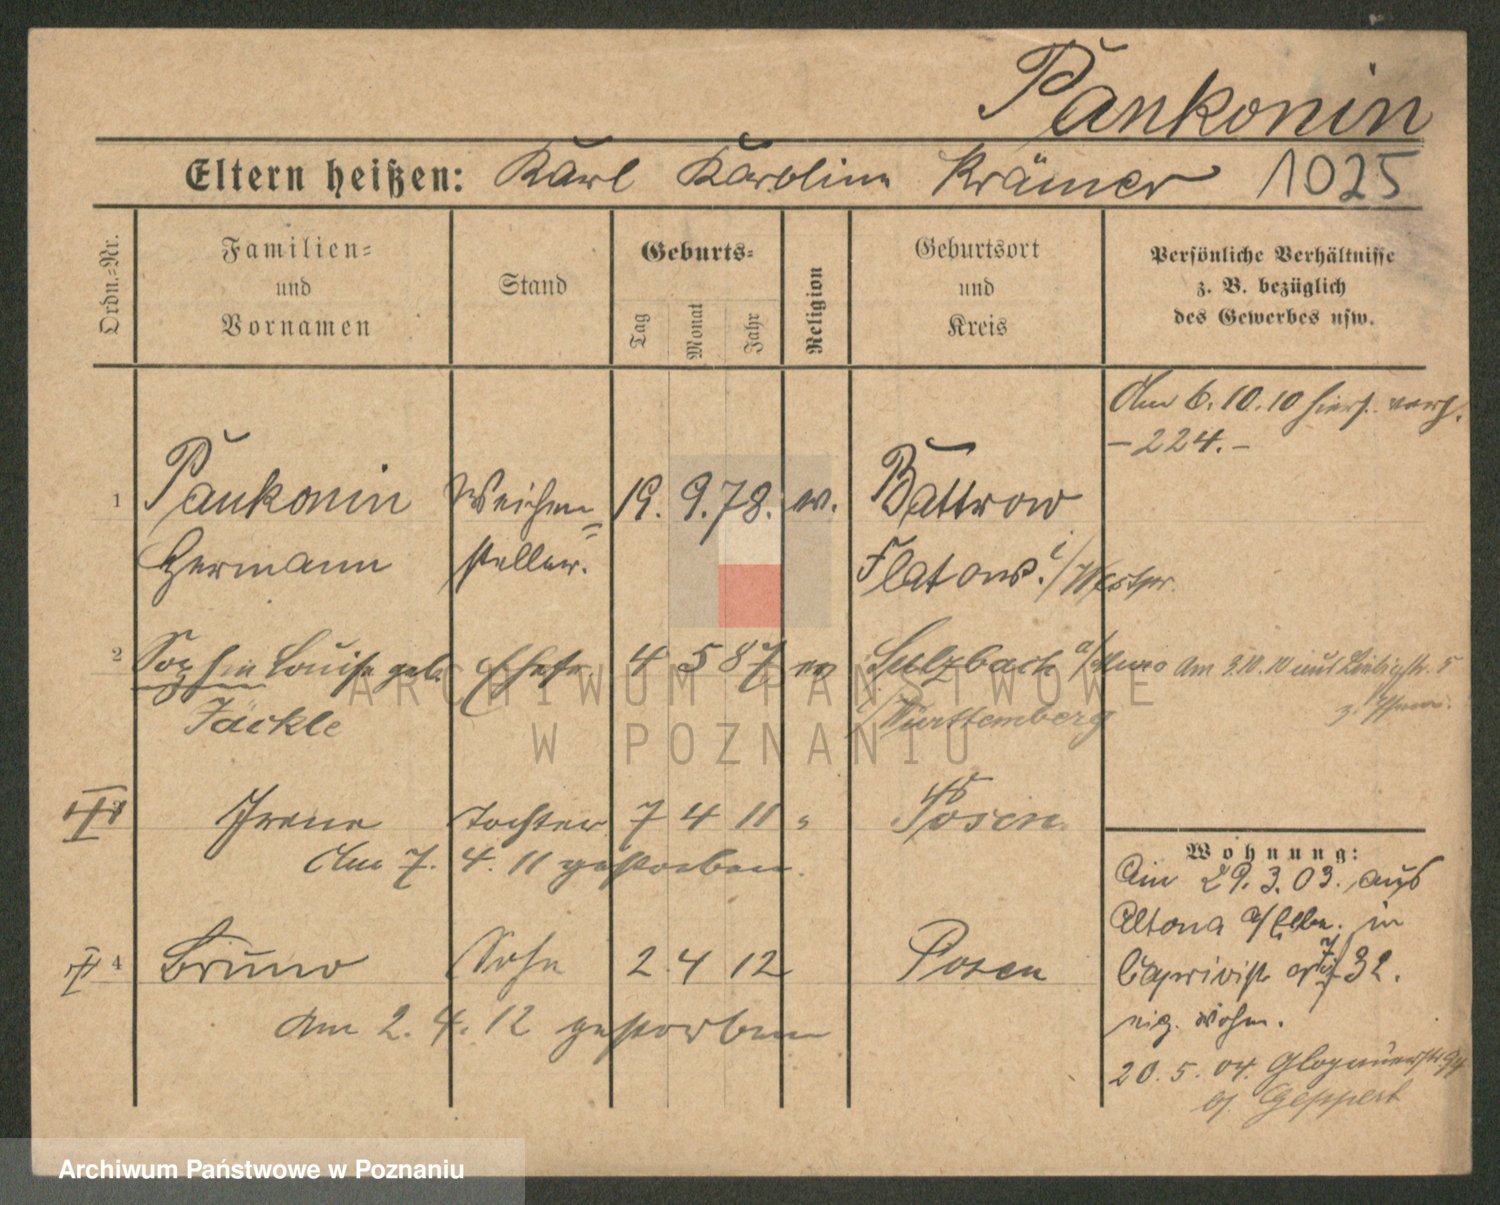 Pankonin
Eltern heißen: Karl Karoline Krämer 1025
Ordn.-Nr.
Familien- und Vornamen
Stand
Geburts-
Tag
Monat
Jahr
Religion
Geburtsort und Kreis
Persönliche Verhältnisse
z. B. bezüglich
des Gewerbes usw.
Am 6.10.10 hierf. verh.
- 224. -
1 Pankonin Weichen= 19. 9. 78. ev. Battrow
Hermann steller. Flatow i/Westpr.
2 Sophie Louise geb. Ehefr. 4 5 87 ev Sulzbach a/Murr Am 3.10.10 aus Liebigstr. 5
Jäckle Württemberg
III 3 Irene Tochter 7 4 11 " Posen
Am 7. 4. 11 gestorben.
4 Bruno Sohn 2 4 12 Posen
Am 2. 4. 12 gestorben
Wohnung:
Am 29. 3. 03. aus
Altona a/Elbe. in
Caprivistr 32.
20. 5. 04. Glogauerstr 94
Geppert
ARCHIWUM PAŃSTWOWE
W POZNANIU
Archiwum Państwowe w Poznaniu